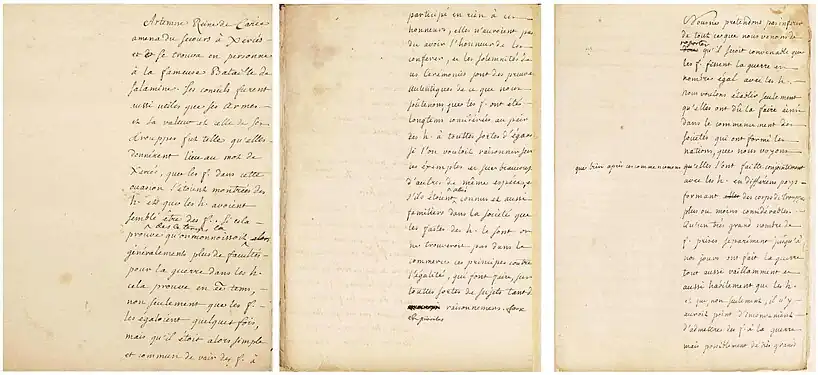 Artemise Reine de Carie
amena du secours à Xercès
et se trouva en personne
à la fameuse Bataille de
Salamine. Ses conseils furent
aussi utiles que ses Armes
et sa valeur et celle de ses
trouppes fut telle qu'elles
donnerent lieu au mot de
Xercès, que les f. dans cette
ocasion s'étoient montrées des
h. et que les h. avoient
semblé être des f. Si cela
dès le temps là
prouve qu'on connoissoit alors
généralement plus de facultés
pour la guerre dans les h.
cela prouve en même tems,
non seulement que les f.
les égaloient quelques fois,
mais qu'il étoit alors simple
et commun de voir des f. à
participé en rien à ces
honneurs, elles n'auroient pas
dû avoir l'honneur de les
conferer, et les solemnités de
ces Ceremonies sont des preuves
autentiques de ce que nous
soutenons, que les f. ont été
longtems considérées au pair
des h. à touttes sortes d'égards
si l'on vouloit raisonner sur
ces exemples et sur beaucoup
d'autres de même espèce
s'ils étoient connus et aussi
familiers dans la société que
les faites des h. le sont on
ne trouveroit pas dans le
commerce ces principes contre
l'égalité, qui font faire, sur
touttes sortes de sujets tant de
raisonnemens faux
Nous ne pretendons pas inferer
de tout ce que nous venons de
raporter
qu'il seroit convenable que
les f. fissent la guerre en
nombre égal avec les h.
nous voulons établir seulement
qu'elles ont dû la faire ainsi
dans le commencement des
sociétés qui ont formé les
nations, que nous voyons
que bien après ce commencement
qu'elles l'ont faitte conjointement
avec les h. en différens pays
formant des corps de trouppes
plus ou moins considérables.
Qu'un très grand nombre de
f. prises separément jusqu'à
nos jours ont fait la guerre
tout aussi vaillamment et
aussi habilement que les h.
et que non seulement, il n'y
auroit point d'inconvénient
d'admettre des f. à la guerre
mais possiblement de très grand